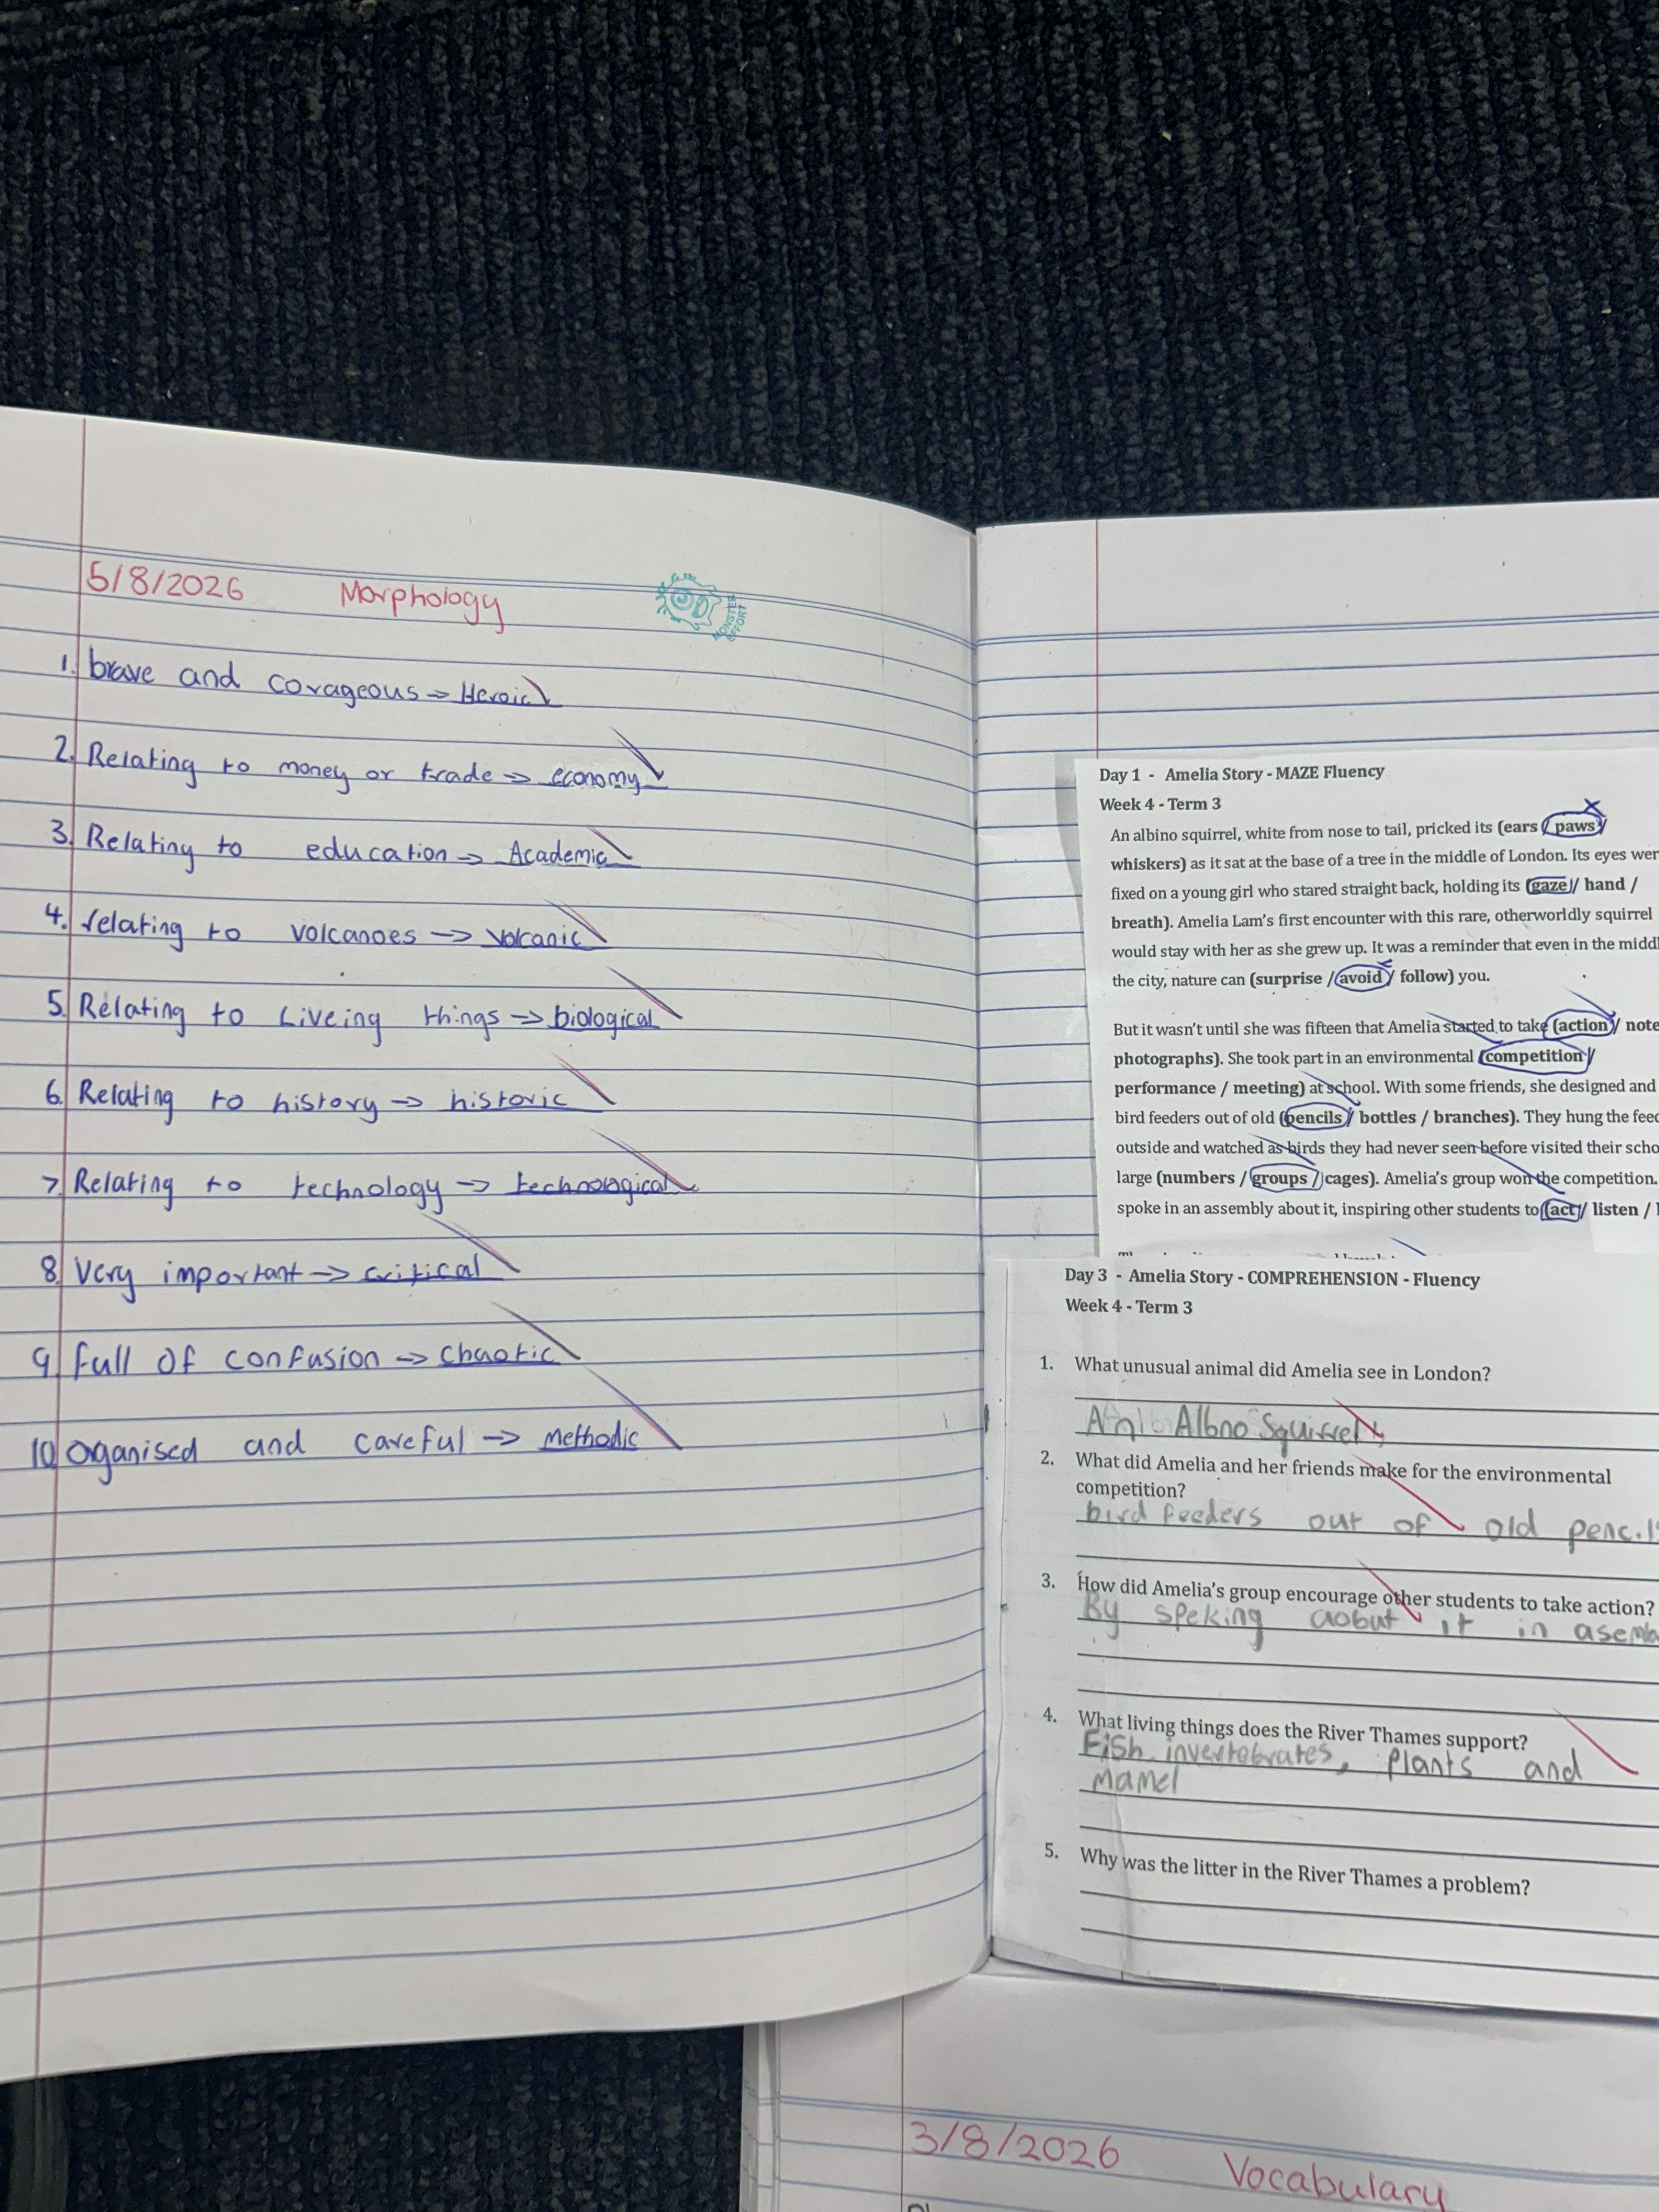 5/8/2026 Morphology
MONSTER EFFORT
1. brave and corageous → Heroic
2. Relating to money or trade → economy
3. Relating to education → Academic
4. relating to volcanoes → volcanic
5. Relating to Liveing things → biological
6. Relating to history → historic
7. Relating to technology → technological
8. Very important → critical
9. full of confusion → chaotic
10. Oganised and careful → Methodic
Day 1 - Amelia Story - MAZE Fluency
Week 4 - Term 3
An albino squirrel, white from nose to tail, pricked its (ears / paws /
whiskers) as it sat at the base of a tree in the middle of London. Its eyes wer
fixed on a young girl who stared straight back, holding its (gaze / hand /
breath). Amelia Lam's first encounter with this rare, otherworldly squirrel
would stay with her as she grew up. It was a reminder that even in the midd
the city, nature can (surprise / avoid / follow) you.
But it wasn't until she was fifteen that Amelia started to take (action / note
photographs). She took part in an environmental (competition /
performance / meeting) at school. With some friends, she designed and
bird feeders out of old (pencils / bottles / branches). They hung the feed
outside and watched as birds they had never seen before visited their scho
large (numbers / groups / cages). Amelia's group won the competition.
spoke in an assembly about it, inspiring other students to (act / listen /
Day 3 - Amelia Story - COMPREHENSION - Fluency
Week 4 - Term 3
1. What unusual animal did Amelia see in London?
Albno Squirrel
2. What did Amelia and her friends make for the environmental
competition?
bird feeders out of old pencils
3. How did Amelia's group encourage other students to take action?
By speking aobut it in asemb
4. What living things does the River Thames support?
Fish, invertebrates, plants and
mamel
5. Why was the litter in the River Thames a problem?
3/8/2026 Vocabulary